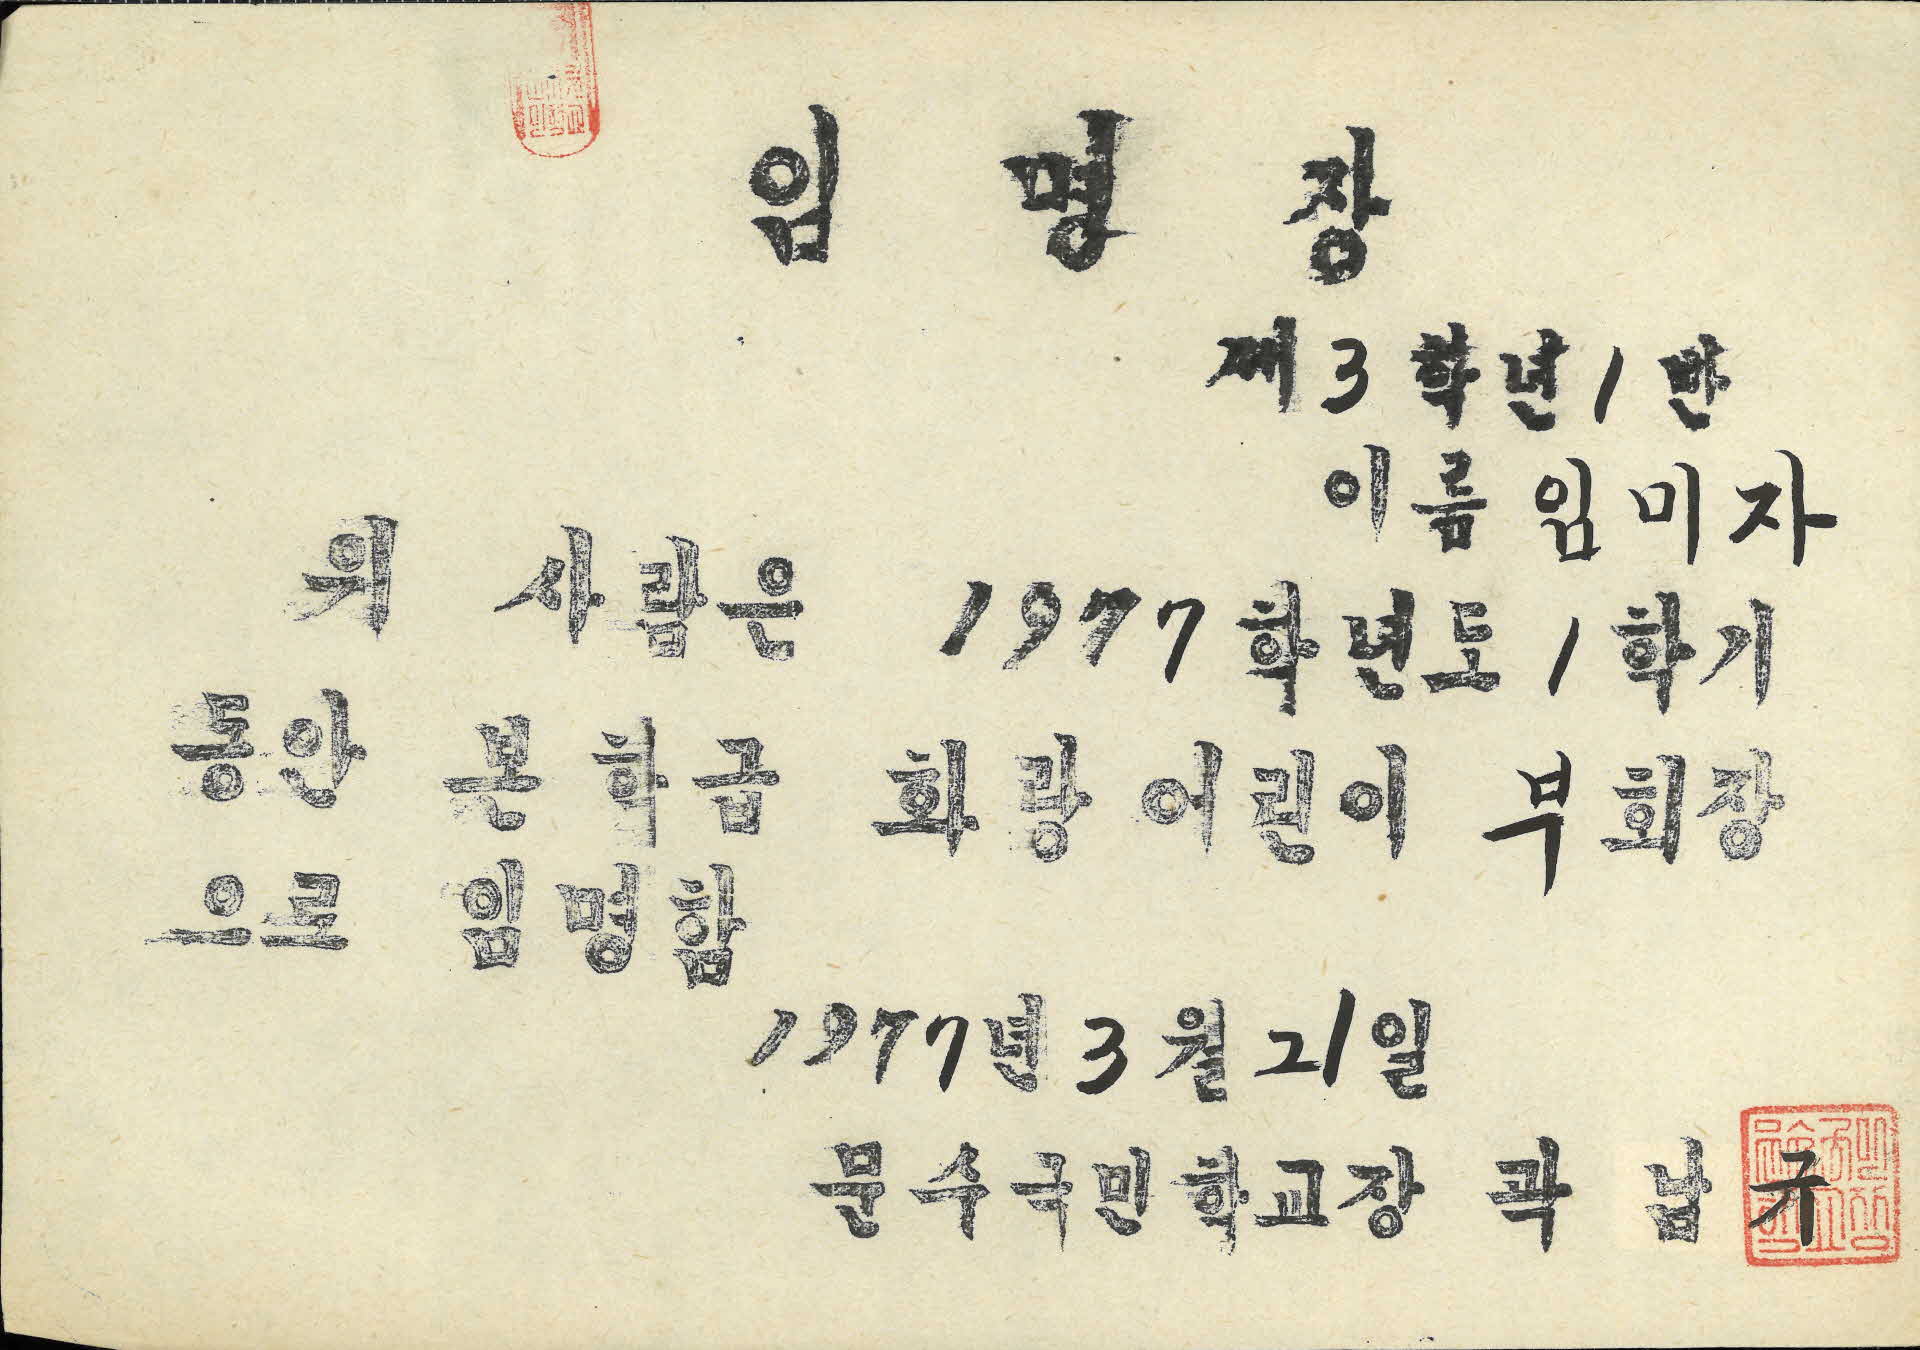 임명장
제3학년1반
이름 임미자
위 사람은 1977학년도1학기
동안 본학급 화랑어린이 부회장
으로 임명함
1977년3월21일
문수국민학교장 곽남규